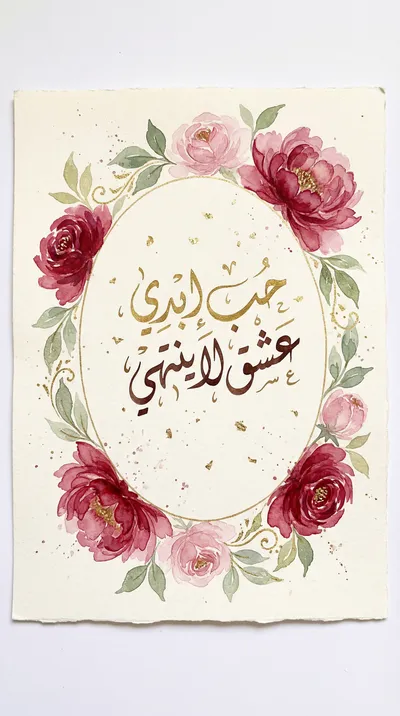 حُب إبْدِي
عَشق لَا ينتهي